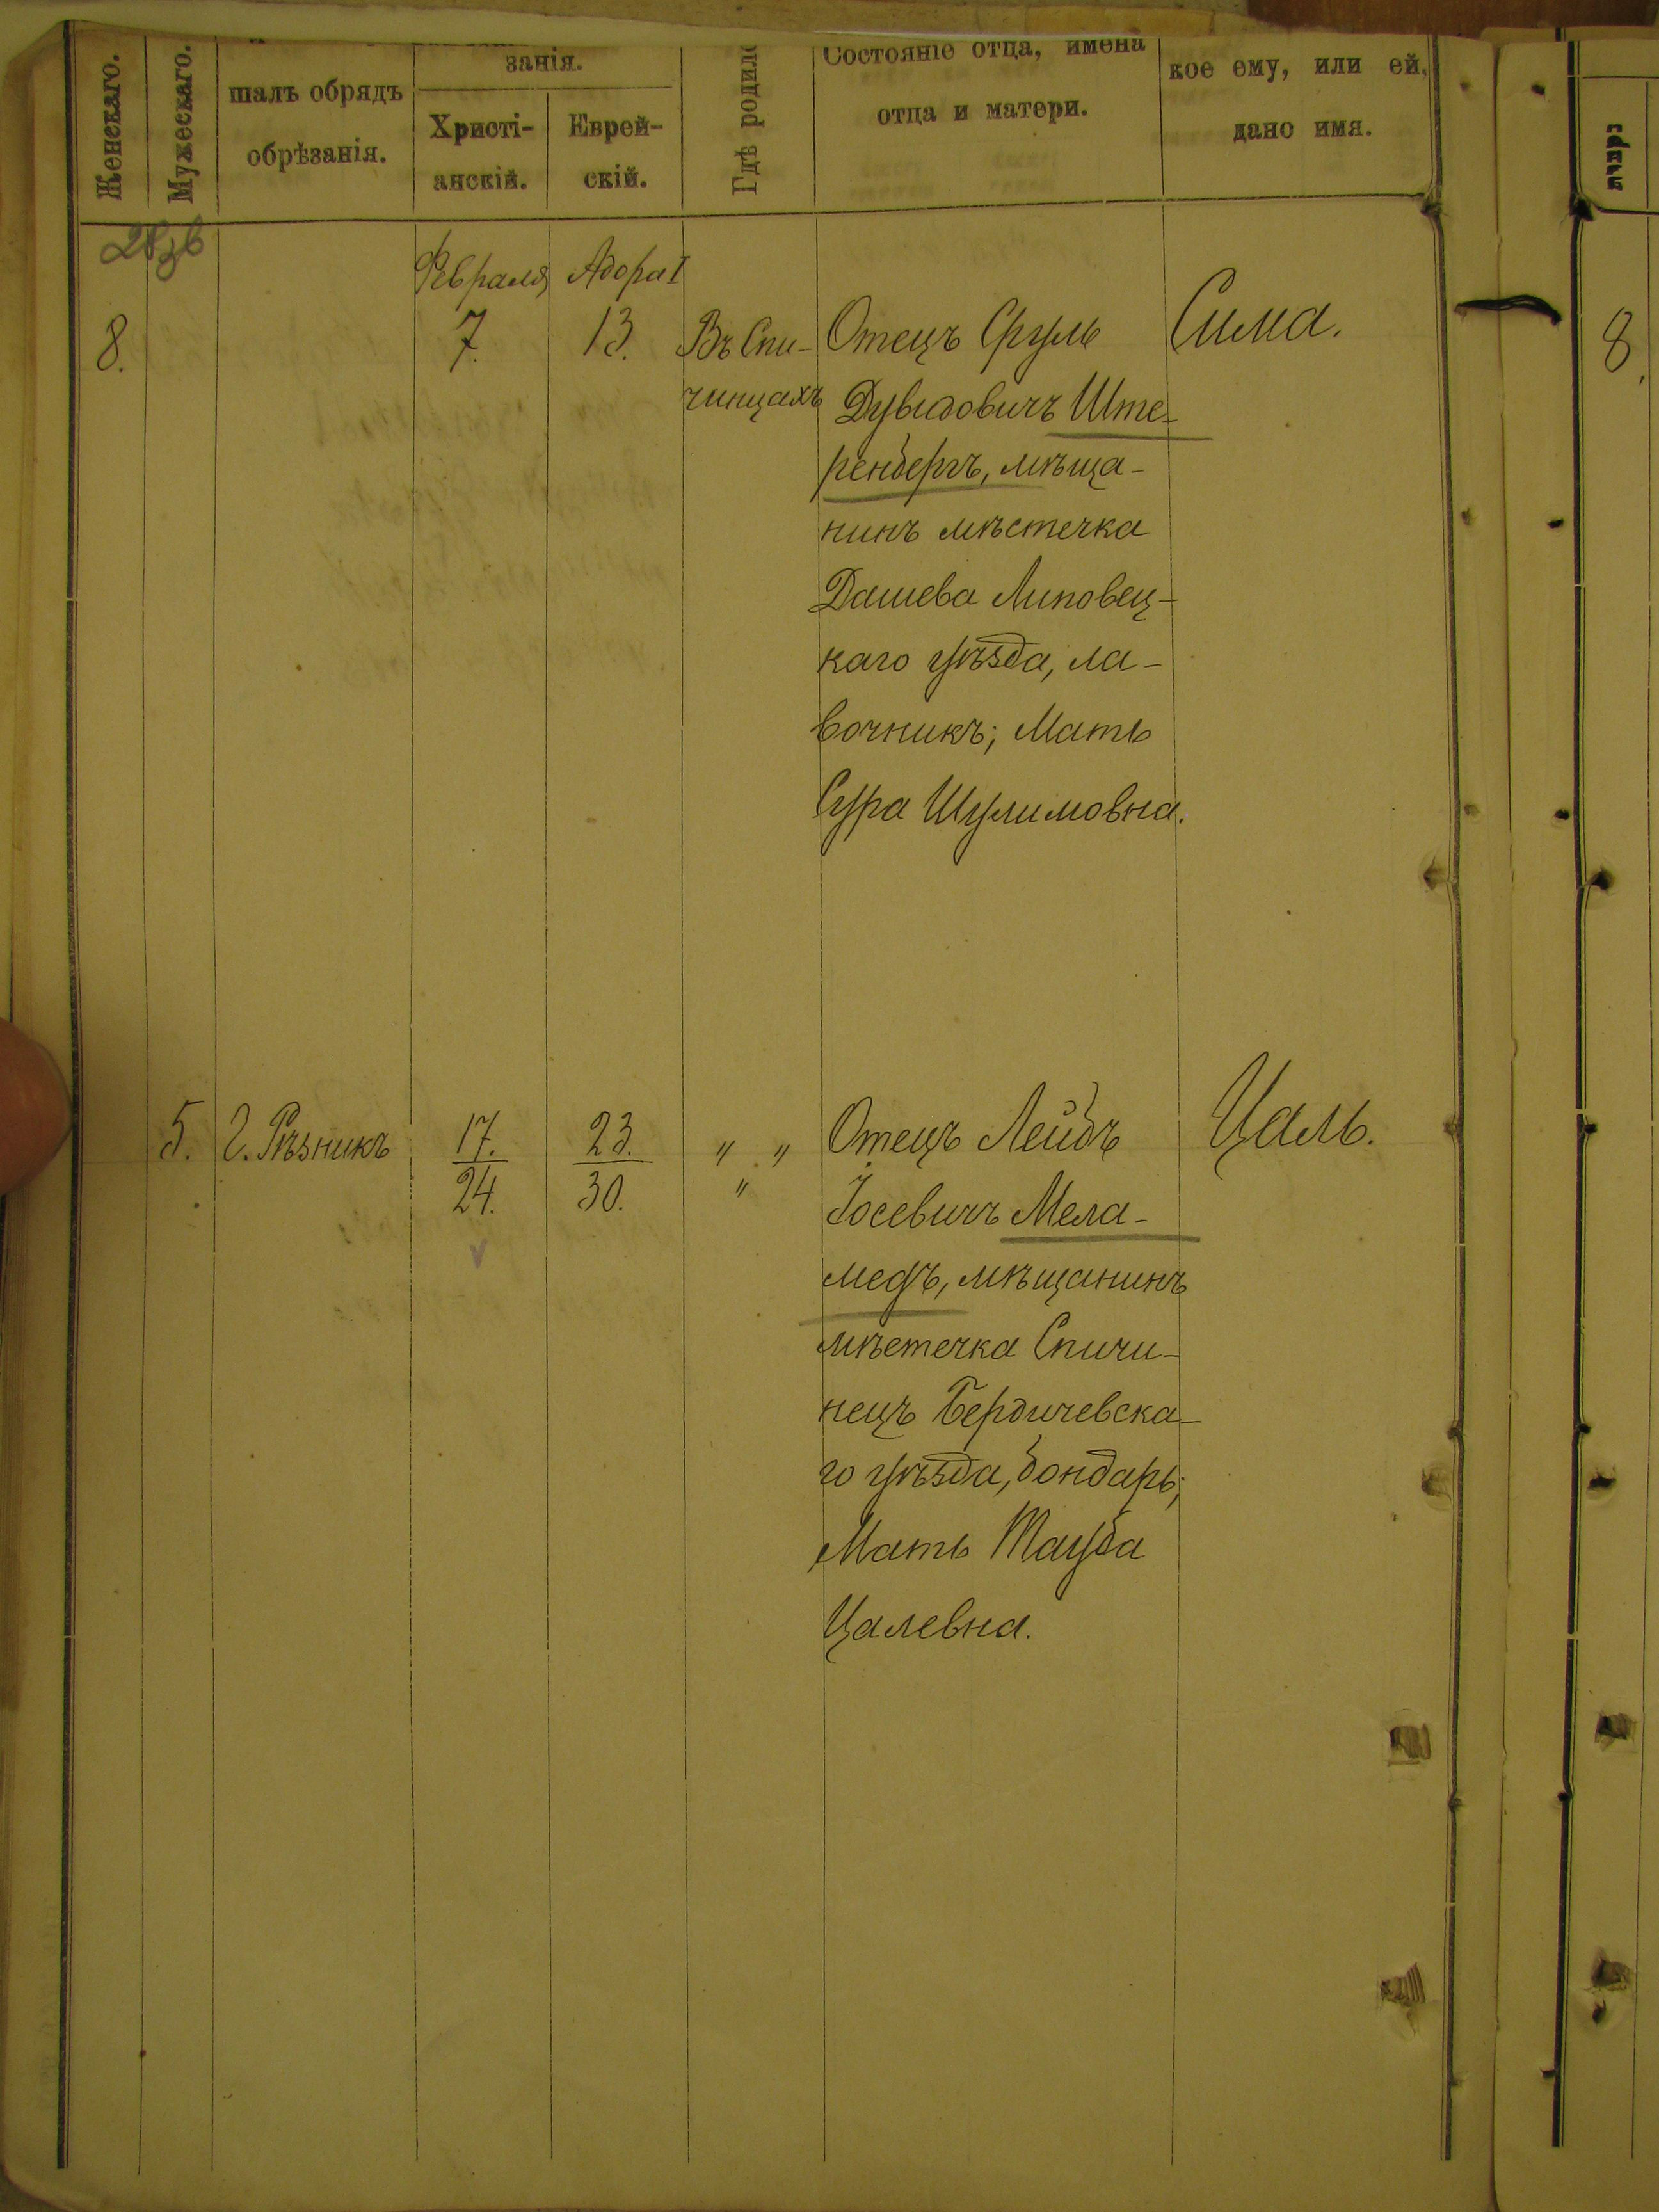 Женскаго.
Мужескаго.
шалъ обрядъ
обрѣзанія.
занія.
Христі-
анскій.
Еврей-
скій.
Гдѣ родилс
Состояніе отца, имена
отца и матери.
кое ему, или ей,
дано имя.
Февраля Адора I
8. 7. 13. Въ Спи-
чинцахъ
Отецъ Сруль
Дувидовичъ Ште-
ренбергъ, мѣща-
нинъ мѣстечка
Дашева Липовец-
каго уѣзда, ла-
вочникъ; Мать
Сура Шулимовна.
Сима.
8.
5. Г. Рѣзникъ 17. 23. " "
24. 30. "
Отецъ Лейбъ
Іосевичъ Мела-
медъ, мѣщанинъ
мѣстечка Спичи-
нецъ Бердичевска-
го уѣзда, бондарь;
Мать Тауба
Цалевна.
Цаль.